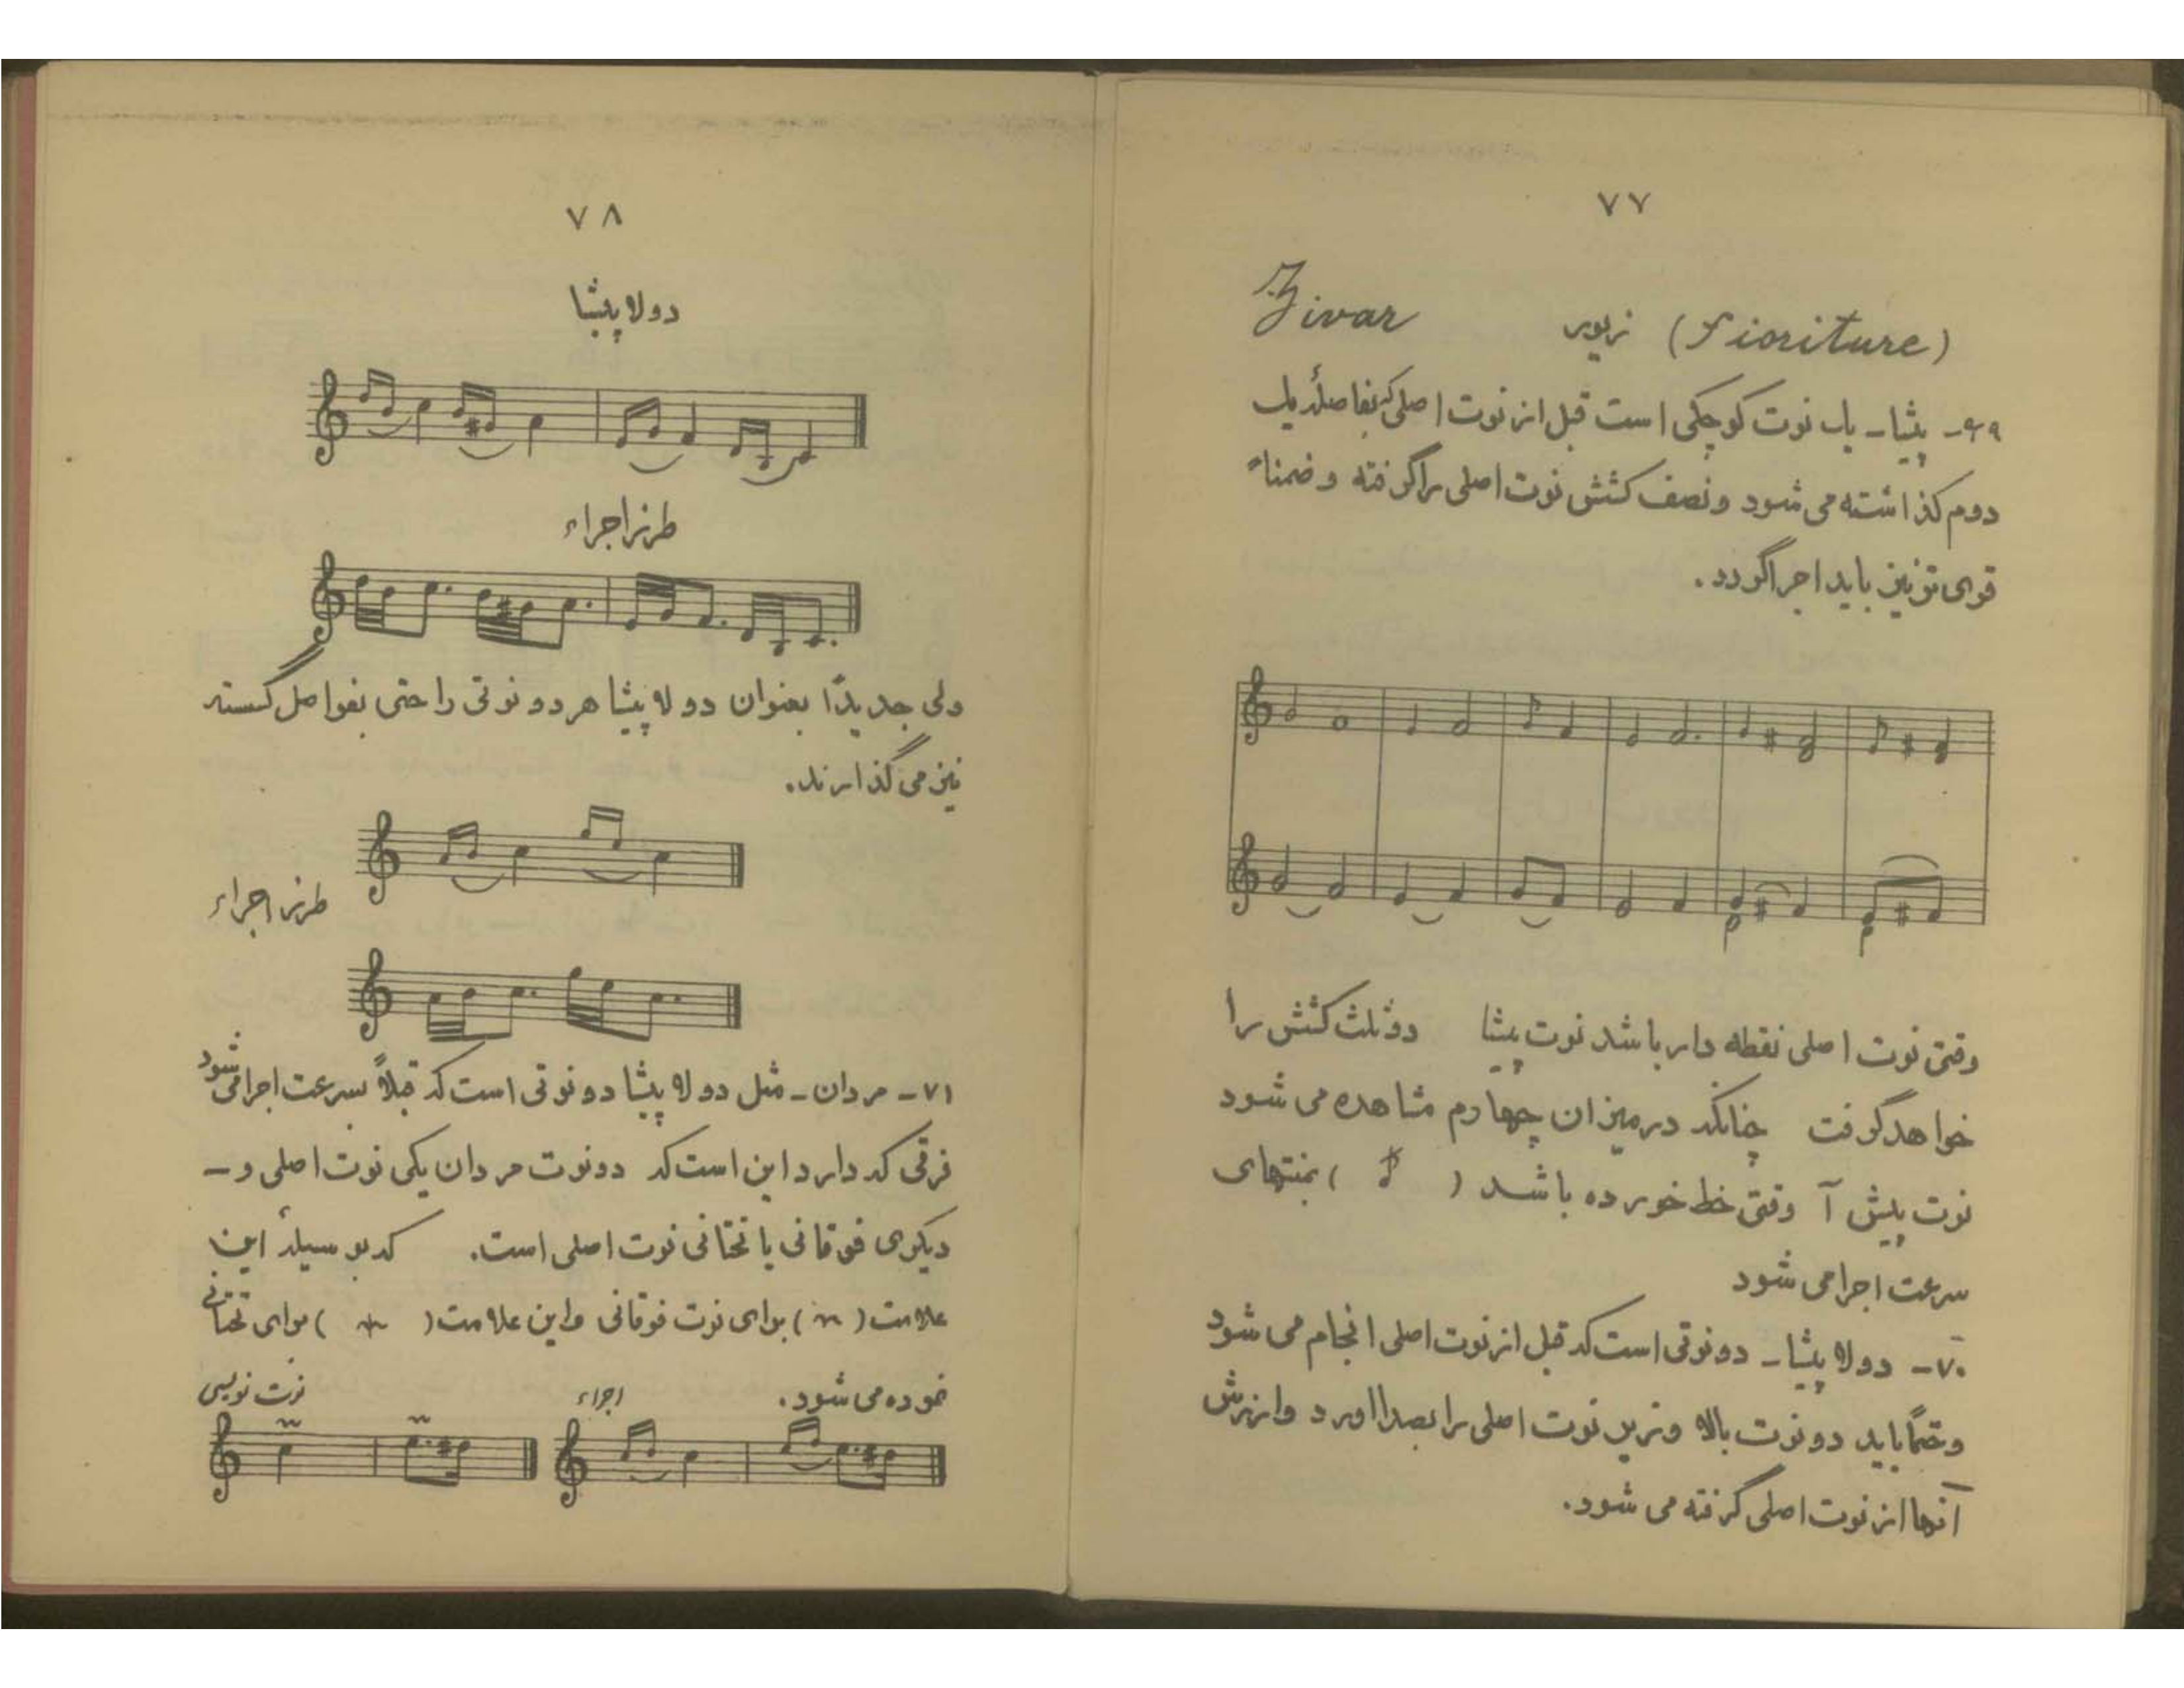 ۷۷
Zivar زیور (Fioriture)
۶۹- پیشا- یک نوت کوچکی است قبل از نوت اصلی که بفاصلهٔ یک
دوم گذاشته می شود و نصف کشش نوت اصلی را گرفته و ضمناً
قوی تر نیز باید اجرا گردد.
وقتی نوت اصلی نقطه دار باشد نوت پیشا دو ثلث کشش را
خواهد گرفت چنانکه در میزان چهارم مشاهده می شود
نوت پیش آ وقتی خط خورده باشد ( ) بمنتهای
سرعت اجرا می شود
۷۰- دولا پیشا- دو نوتی است که قبل از نوت اصلی انجام می شود
و حتماً باید دو نوت بالا و زیر نوت اصلی را بصدا اورد و ارزش
آنها از نوت اصلی گرفته می شود.
۷۸
دولا پیشا
طرز اجراء
ولی جدیداً بعنوان دولا پیشا هر دو نوتی را حتی بفواصل گسسته
نیز می گذارند.
طرز اجراء
۷۱- مردان- مثل دولا پیشا دو نوتی است که قبلاً بسرعت اجرا می شود
فرقی که دارد این است که دو نوت مردان یکی نوت اصلی و-
دیگری فوقانی یا تحتانی نوت اصلی است. که بوسیلهٔ این
علامت ( ) برای نوت فوقانی و این علامت ( ) برای تحتانی
نموده می شود. اجراء نوت نویسی